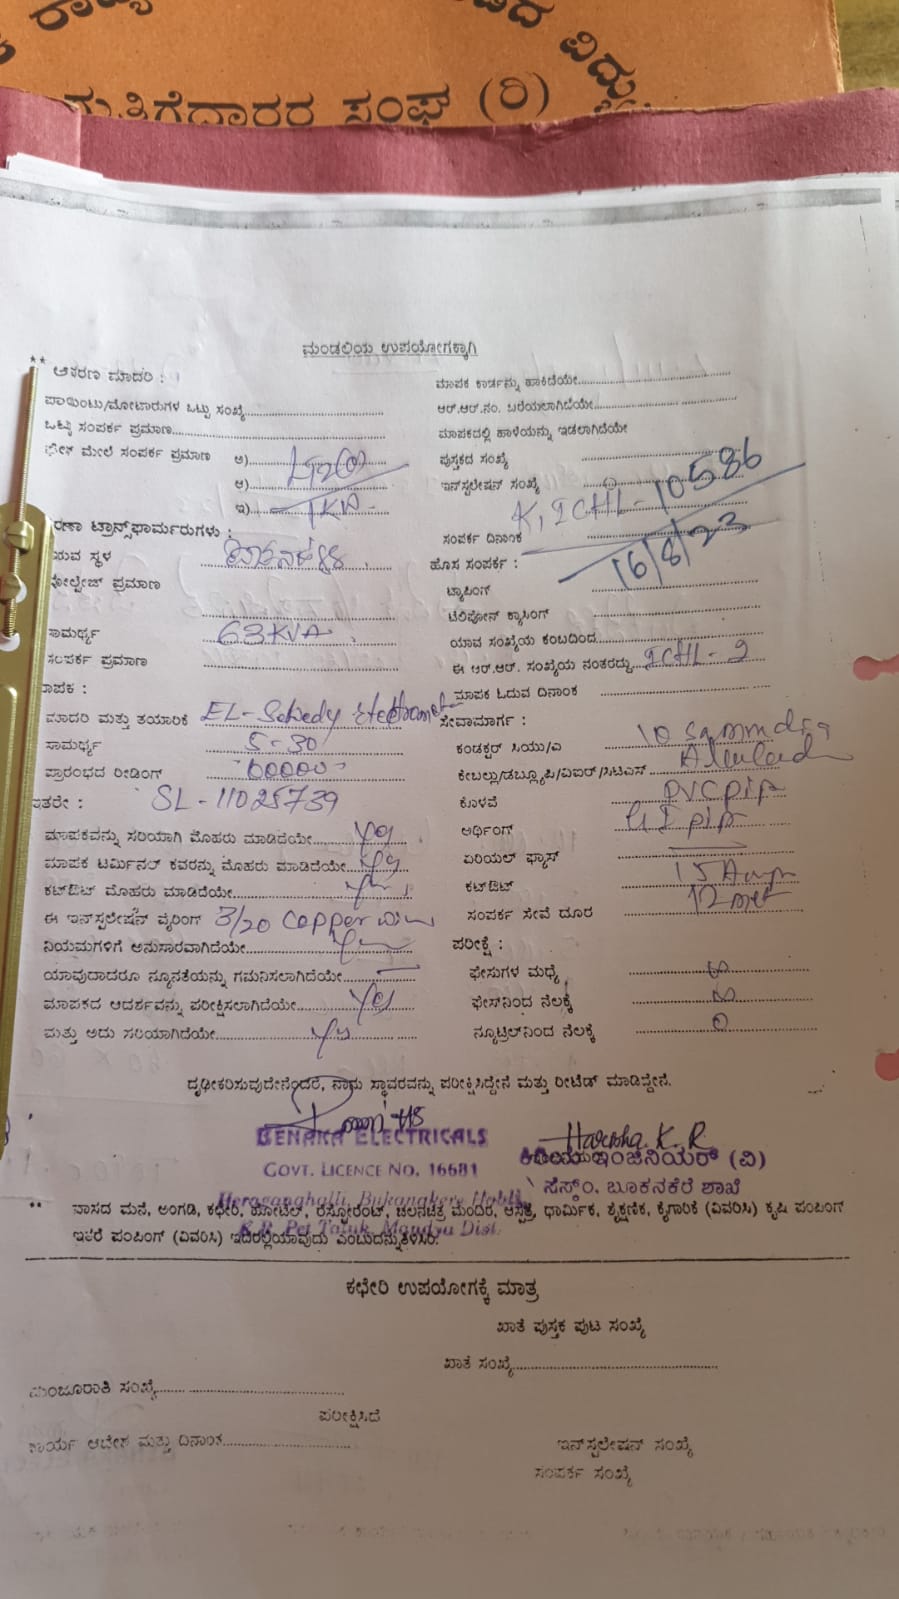 ರಾಜ್ಯ
ವಿದ್ಯು
ಗುತ್ತಿಗೆದಾರರ ಸಂಘ (ರಿ)
ಮಂಡಲಿಯ ಉಪಯೋಗಕ್ಕಾಗಿ
** ಆಕರಣ ಮಾದರಿ :
ಮಾಪಕ ಕಾರ್ಡನ್ನು ಹಾಕಿದೆಯೇ
ಪಾಯಿಂಟು/ಮೋಟಾರುಗಳ ಒಟ್ಟು ಸಂಖ್ಯೆ
ಆರ್.ಆರ್.ನಂ. ಬರೆಯಲಾಗಿದೆಯೇ
ಒಟ್ಟು ಸಂಪರ್ಕ ಪ್ರಮಾಣ
ಮಾಪಕದಲ್ಲಿ ಹಾಳೆಯನ್ನು ಇಡಲಾಗಿದೆಯೇ
ಮೇಲೆ ಸಂಪರ್ಕ ಪ್ರಮಾಣ ಅ)
ಪುಸ್ತಕದ ಸಂಖ್ಯೆ
ಆ)
ಇನ್‌ಸ್ಟಲೇಷನ್ ಸಂಖ್ಯೆ
ಇ) 1KW
10586
ಸಂಪರ್ಕ ದಿನಾಂಕ 16/8/23
ಟ್ರಾನ್ಸ್‌ಫಾರ್ಮರುಗಳು :
ಹೊಸ ಸಂಪರ್ಕ :
ಸ್ಥಳ
ಟ್ಯಾಪಿಂಗ್
ವೋಲ್ಟೇಜ್ ಪ್ರಮಾಣ
ಟೆಲಿಫೋನ್ ಕ್ರಾಸಿಂಗ್
ಸಾಮರ್ಥ್ಯ 63KVA
ಯಾವ ಸಂಖ್ಯೆಯ ಕಂಬದಿಂದ
ಸಂಪರ್ಕ ಪ್ರಮಾಣ
ಈ ಆರ್.ಆರ್. ಸಂಖ್ಯೆಯ ನಂತರದ್ದು ICHL-2
ಮಾಪಕ :
ಮಾಪಕ ಓದುವ ದಿನಾಂಕ
ಮಾದರಿ ಮತ್ತು ತಯಾರಿಕೆ EL-
ಸೇವಾಮಾರ್ಗ :
ಸಾಮರ್ಥ್ಯ 5-30
ಕಂಡಕ್ಟರ್ ಸಿಯು/ಎ 10
ಪ್ರಾರಂಭದ ರೀಡಿಂಗ್ 00000
ಕೇಬಲ್ಲು/ಡಬ್ಲ್ಯೂಪಿ/ವಿಐರ್/ಸಿಟಿಎಸ್
ಇತರೇ : SL-11025739
ಕೊಳವೆ PVC pip
ಮಾಪಕವನ್ನು ಸರಿಯಾಗಿ ಮೊಹರು ಮಾಡಿದೆಯೇ Yes
ಅರ್ಥಿಂಗ್ GI pip
ಮಾಪಕ ಟರ್ಮಿನಲ್ ಕವರನ್ನು ಮೊಹರು ಮಾಡಿದೆಯೇ Yes
ಏರಿಯಲ್ ಫ್ಯೂಸ್
ಕಟ್‌ಔಟ್ ಮೊಹರು ಮಾಡಿದೆಯೇ
ಕಟ್‌ಔಟ್ 15 Amp
ಈ ಇನ್‌ಸ್ಟಲೇಷನ್ ವೈರಿಂಗ್ 3/20 copper
ಸಂಪರ್ಕ ಸೇವೆ ದೂರ 12 met
ನಿಯಮಗಳಿಗೆ ಅನುಸಾರವಾಗಿದೆಯೇ
ಪರೀಕ್ಷೆ :
ಯಾವುದಾದರೂ ನ್ಯೂನತೆಯನ್ನು ಗಮನಿಸಲಾಗಿದೆಯೇ
ಫೇಸುಗಳ ಮಧ್ಯೆ
ಮಾಪಕದ ಆದರ್ಶವನ್ನು ಪರೀಕ್ಷಿಸಲಾಗಿದೆಯೇ Yes
ಫೇಸ್‌ನಿಂದ ನೆಲಕ್ಕೆ
ಮತ್ತು ಅದು ಸರಿಯಾಗಿದೆಯೇ Yes
ನ್ಯೂಟ್ರಲ್‌ನಿಂದ ನೆಲಕ್ಕೆ 0
ದೃಢೀಕರಿಸುವುದೇನೆಂದರೆ, ನಾನು ಸ್ಥಾವರವನ್ನು ಪರೀಕ್ಷಿಸಿದ್ದೇನೆ ಮತ್ತು ರೀಟೆಡ್ ಮಾಡಿದ್ದೇನೆ.
BENAKA ELECTRICALS
Haersha K. R
GOVT. LICENCE NO. 16681
ಕಿರಿಯ ಇಂಜಿನಿಯರ್ (ವಿ)
Heraganahalli, Bukanakere Hobli
ಸೆಸ್ಕಾಂ. ಬೂಕನಕೆರೆ ಶಾಖೆ
K.R. Pet Taluk, Mandya Dist.
** ವಾಸದ ಮನೆ, ಅಂಗಡಿ, ಕಛೇರಿ, ಹೋಟೆಲ್, ರೆಸ್ಟೋರೆಂಟ್, ಚಲನಚಿತ್ರ ಮಂದಿರ, ಆಸ್ಪತ್ರೆ, ಧಾರ್ಮಿಕ, ಶೈಕ್ಷಣಿಕ, ಕೈಗಾರಿಕೆ (ವಿವರಿಸಿ) ಕೃಷಿ ಪಂಪಿಂಗ್
ಇತರೆ ಪಂಪಿಂಗ್ (ವಿವರಿಸಿ) ಇದರಲ್ಲಿಯಾವುದು ಎಂಬುದನ್ನು ತಿಳಿಸಿರಿ.
ಕಛೇರಿ ಉಪಯೋಗಕ್ಕೆ ಮಾತ್ರ
ಖಾತೆ ಪುಸ್ತಕ ಪುಟ ಸಂಖ್ಯೆ
ಖಾತೆ ಸಂಖ್ಯೆ
ಮಂಜೂರಾತಿ ಸಂಖ್ಯೆ
ಪರೀಕ್ಷಿಸಿದೆ
ಕಾರ್ಯ ಆದೇಶ ಮತ್ತು ದಿನಾಂಕ
ಇನ್‌ಸ್ಟಲೇಷನ್ ಸಂಖ್ಯೆ
ಸಂಪರ್ಕ ಸಂಖ್ಯೆ